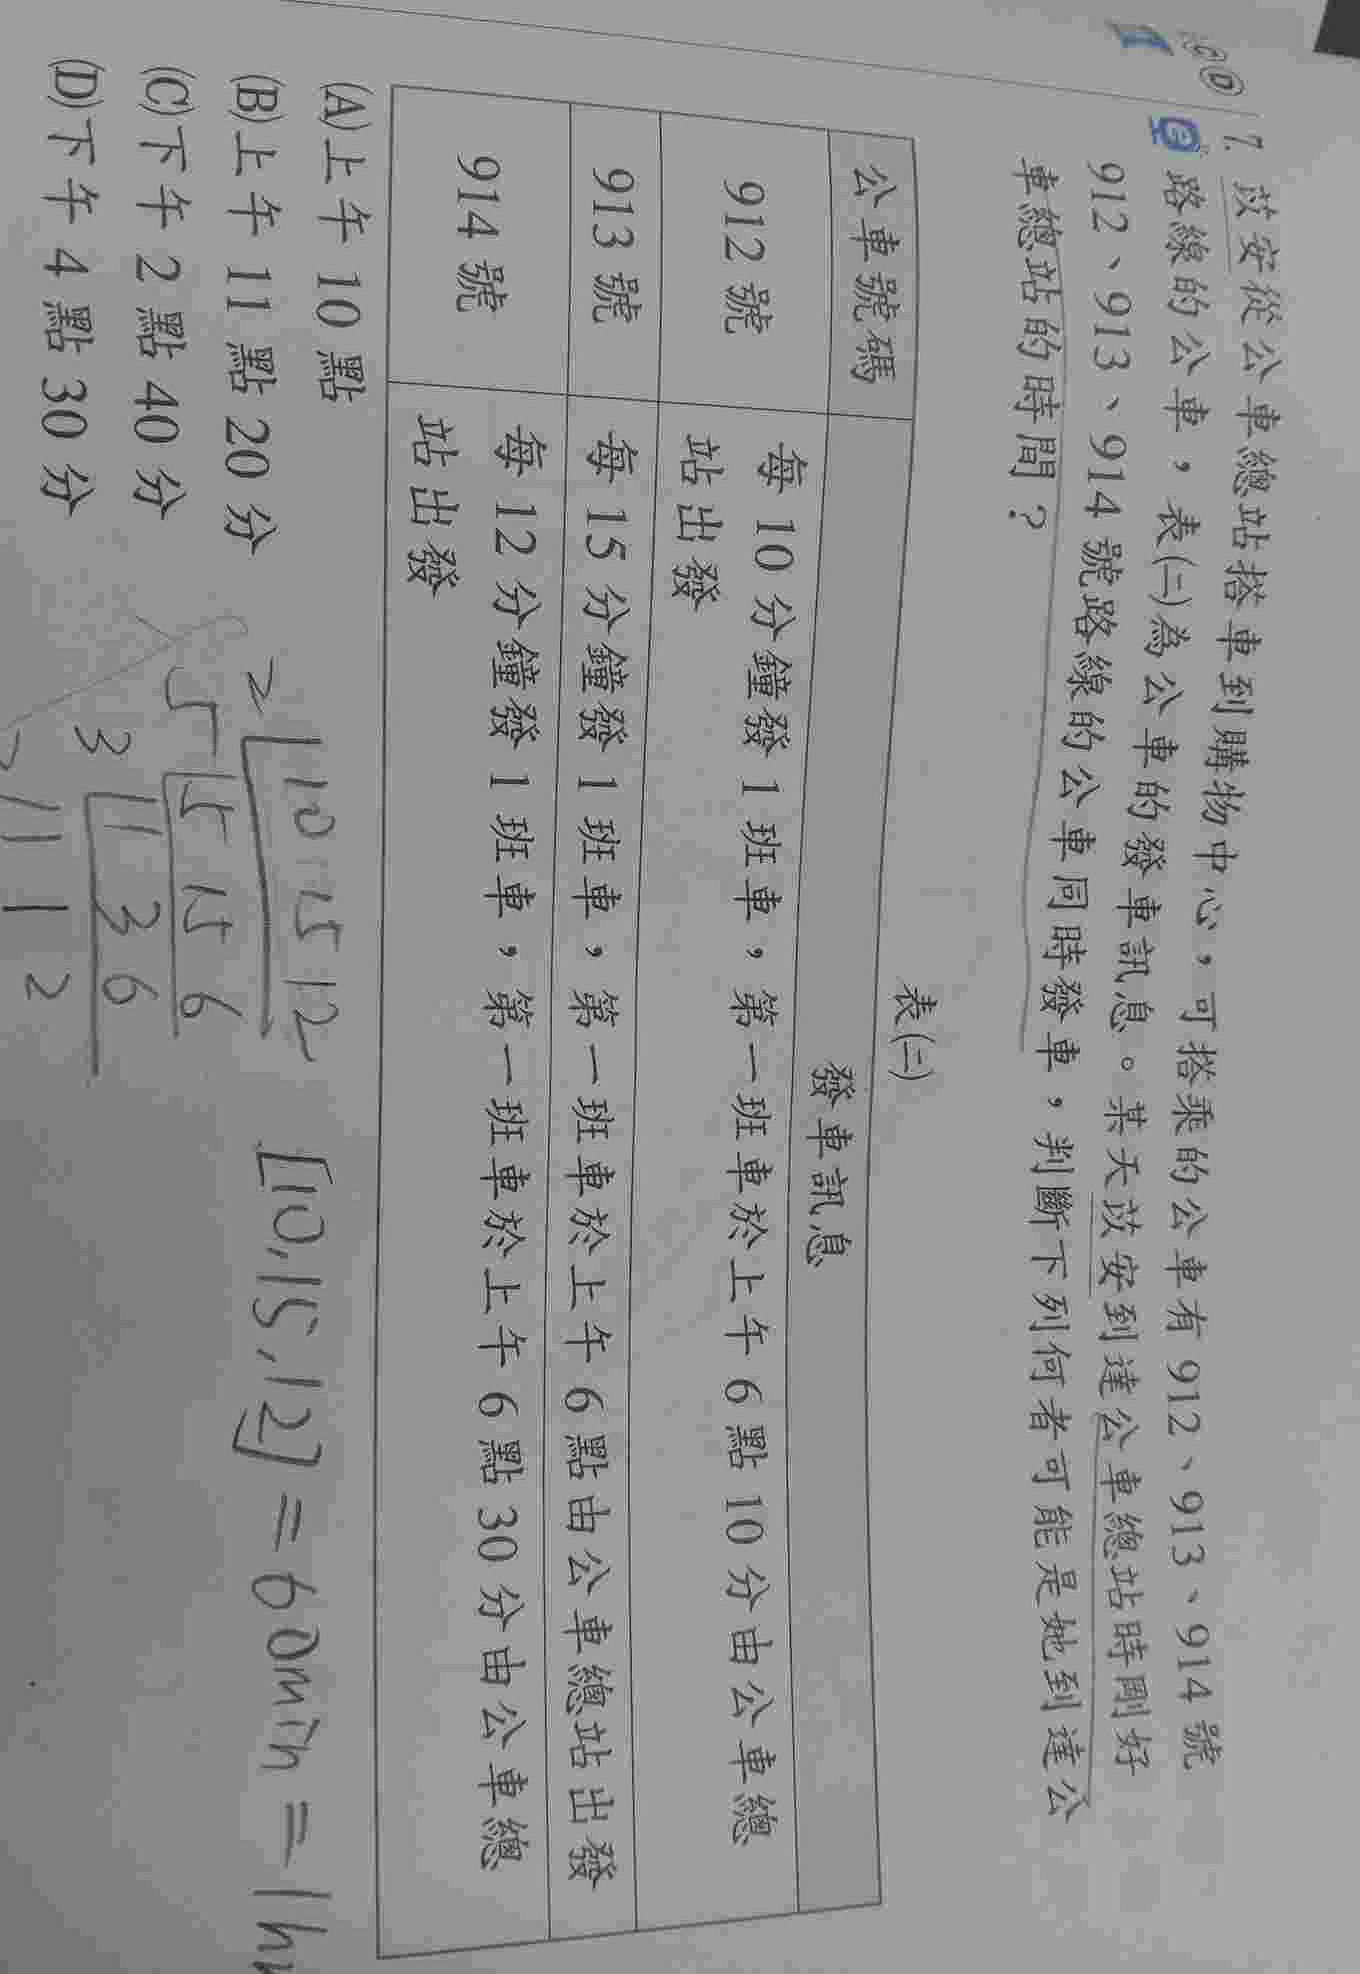 7. 苡安從公車總站搭車到購物中心，可搭乘的公車有 912、913、914 號
路線的公車，表(二)為公車的發車訊息。某天苡安到達公車總站時剛好
912、913、914 號路線的公車同時發車，判斷下列何者可能是她到達公
車總站的時間？
表(二)
公車號碼 發車訊息
912 號 每 10 分鐘發 1 班車，第一班車於上午 6 點 10 分由公車總
站出發
913 號 每 15 分鐘發 1 班車，第一班車於上午 6 點由公車總站出發
914 號 每 12 分鐘發 1 班車，第一班車於上午 6 點 30 分由公車總
站出發
(A)上午 10 點
(B)上午 11 點 20 分
(C)下午 2 點 40 分
(D)下午 4 點 30 分
2 10 15 12
5 5 15 6
3 1 3 6
1 1 2
[10,15,12] = 60min = 1hr